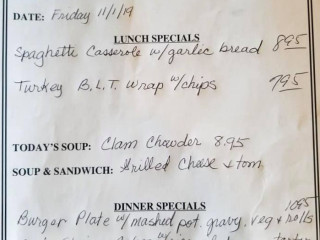 DATE: Friday 11/1/19
LUNCH SPECIALS
Spaghetti Casserole w/garlic bread 8.95
Turkey B.L.T. Wrap w/chips 7.95
TODAY'S SOUP: Clam Chowder 8.95
SOUP & SANDWICH: Grilled Cheese & tom
DINNER SPECIALS
Burger Plate w/mashed pot. gravy, veg & rolls